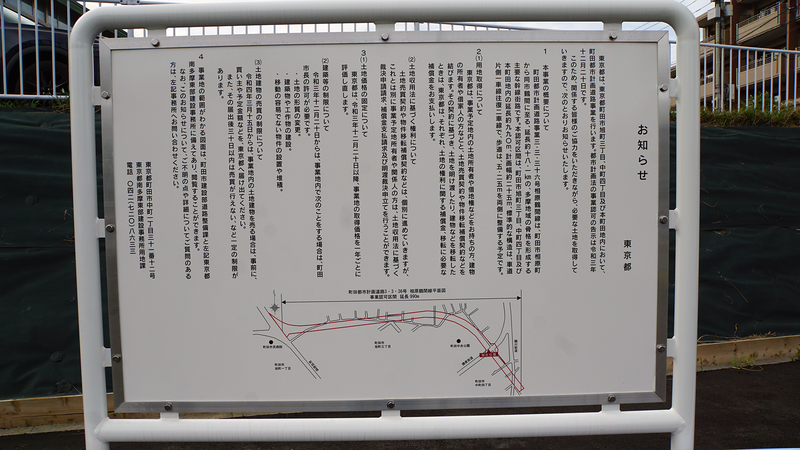 お知らせ
東京都
東京都は、東京都町田市旭町三丁目、中町四丁目及び本町田地内において、
町田都市計画道路事業を行います。都市計画法の事業認可の告示は令和三年
十二月二十日です。
このため、関係する皆様のご協力をいただきながら、必要な土地を取得して
いきますので、次のとおりお知らせいたします。
1 本事業の概要について
町田都市計画道路事業三・三・三六号相原鶴間線は、町田市相原町
から同市鶴間に至る、延長約十八・一kmの、多摩地域の骨格を形成する
主要な幹線街路です。本認可区間は、町田市旭町三丁目、中町四丁目及び
本町田地内の延長約九九〇m、計画幅約二十五m、標準的な構造は、車道
片側一車線往復二車線で、歩道は、五・二五mを両側に整備する予定です。
2(1)用地取得について
東京都は、事業予定地内の土地所有者や借地権などをお持ちの方、建物
の所有者や借家人の方などと、土地売買契約や物件移転補償契約などを
結びます。その契約に基づき、土地を明け渡したり、建物などを移転した
ときは、東京都は、それぞれ、土地の権利に関する補償金、移転に必要な
補償金をお支払いします。
(2)土地収用法に基づく権利について
土地売買契約や物件移転補償契約などは、個別に進めていきますが、
これとは別に事業予定地所有者や関係人の方は、土地収用法に基づく
裁決申請請求、補償金支払請求及び明渡裁決申立てを行うことができます。
3(1)土地価格の固定について
東京都は、令和三年十二月二十日以降、事業地の取得価格を一年ごとに
評価し直します。
(2)建築等の制限について
令和三年十二月二十日からは、事業地内で次のことをする場合は、町田
市長の許可が必要です。
・土地の形質の変更。
・建築物や工作物の建設。
・移動の容易でない物件の設置や堆積。
(3)土地建物の売買の制限について
令和四年三月十五日からは、事業地内の土地建物を売る場合は、事前に、
買い手や予定金額などを、東京都へ届け出てください。
また、その届出後三十日以内は売買が行えない、など一定の制限が
あります。
4 事業地の範囲がわかる図面は、町田市建設部道路整備課と左記東京都
南多摩東部建設事務所に備えてあり、閲覧することができます。
なお、このお知らせについて、ご不明の点や詳細についてご質問のある
方は、左記事務所へお問い合わせください。
東京都町田市中町一丁目三十一番十二号
東京都南多摩東部建設事務所用地課
電話 〇四二-七二〇-八六三三
町田都市計画道路3・3・36号 相原鶴間線平面図
事業認可区間 延長 990m
町田市民病院
町田市
旭町一丁目
町田市
旭町三丁目
町田中央公園
町田市
中町四丁目